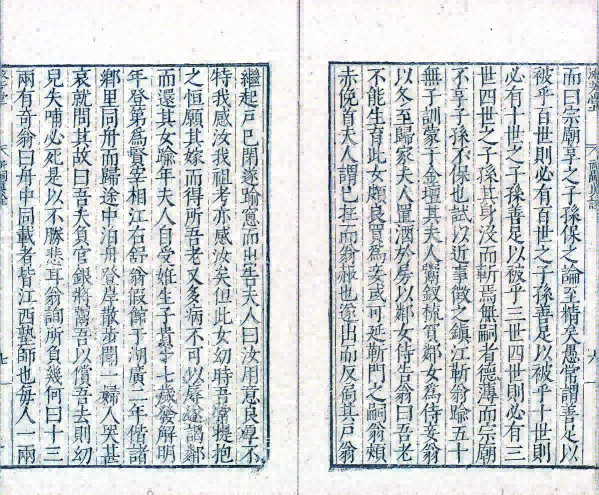 而曰宗廟享之子孫保之之論至精矣愚常謂善足以
被乎百世則必有百世之子孫善足以被乎十世則
必有十世之子孫善足以被乎三世四世則必有三
世四世之子孫其身沒而斬焉無嗣者德溥而宗廟
不享子孫不保也試以近事徵之鎮江靳翁踰五十
無子訓蒙于金壇其夫人鬻釵梳買鄰女為侍妾翁
以冬至歸家夫人置酒於房以鄰女侍告翁曰吾老
不能生育此女頗良買為妾或可延靳門之嗣翁頰
赤俛首夫人謂己在而翁赧也遂出而反扃其戶翁
繼起戶已閉遂踰窻而出告夫人曰汝用意良厚不
特我感汝我祖考亦感汝矣但此女幼時吾常提抱
之恒願其嫁而得所吾老又多病不可以辱遂謁鄰
而還其女踰年夫人自受姙生子貴十七歲發解明
年登第為賢宰相江右舒翁假館于湖廣二年偕諸
鄉里同舟而歸途中泊舟登岸散步聞一婦人哭甚
哀就問其故曰吾夫負官銀將鬻吾以償吾去則幼
兒失哺必死是以不勝悲耳翁詢所負幾何曰十三
兩有奇翁曰舟中同載者皆江西塾師也每人一兩